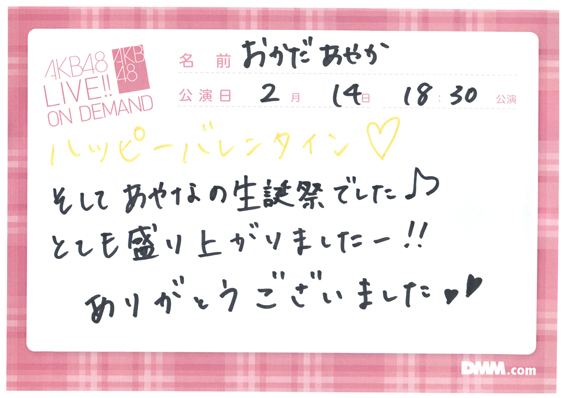 AKB48
LIVE!!
ON DEMAND
AKB
48
名前 おかだ あやか
公演日 2月 14日 18:30 公演
ハッピーバレンタイン♡
そして あやなの生誕祭でした♪
とても盛り上がりましたー!!
ありがとうございました♥♥
DMM.com